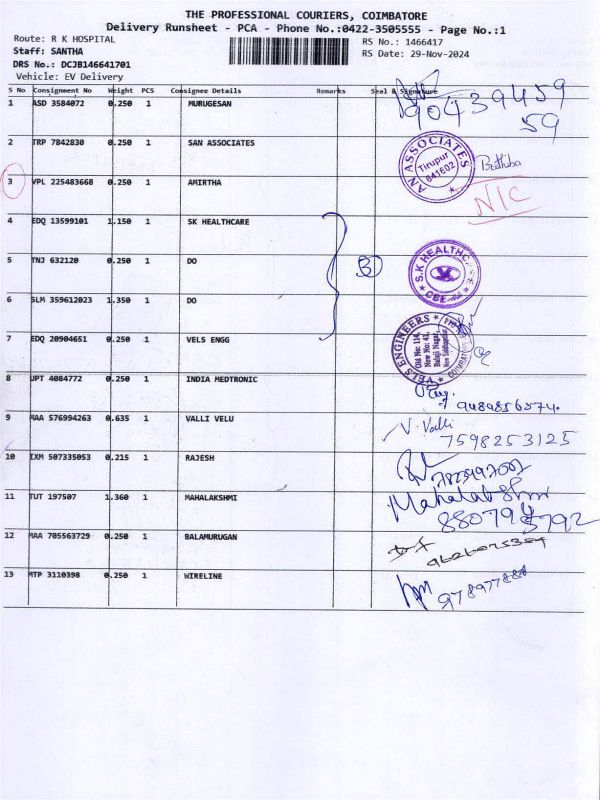 THE PROFESSIONAL COURIERS, COIMBATORE
Delivery Runsheet - PCA - Phone No.:0422-3505555 - Page No.:1
Route: R K HOSPITAL
RS No.: 1466417
Staff: SANTHA
RS Date: 29-Nov-2024
DRS No.: DCJB146641701
Vehicle: EV Delivery
S No Consignment No Weight PCS Consignee Details Remarks Seal & Signature
1 ASD 3584072 0.250 1 MURUGESAN
9043945959
2 TRP 7842830 0.250 1 SAN ASSOCIATES
AN ASSOCIATES Tirupur 641602
3 VPL 225483668 0.250 1 AMIRTHA N/C
4 EDQ 13599101 1.150 1 SK HEALTHCARE
5 TNJ 632120 0.250 1 DO
S.K HEALTHC CBE
6 SLM 359612023 1.350 1 DO
7 EDQ 20904651 0.250 1 VELS ENGG
VELS ENGINEERS Old No: 114, New No: 41, Balaji Nagar,
8 JPT 4084772 0.250 1 INDIA MEDTRONIC
9489856574
9 MAA 576994263 0.635 1 VALLI VELU V. Valli
7598253125
10 IXM 507335053 0.215 1 RAJESH
11 TUT 197507 1.360 1 MAHALAKSHMI Mahalakshmi
12 MAA 705563729 0.250 1 BALAMURUGAN
13 MTP 3110398 0.250 1 WIRELINE